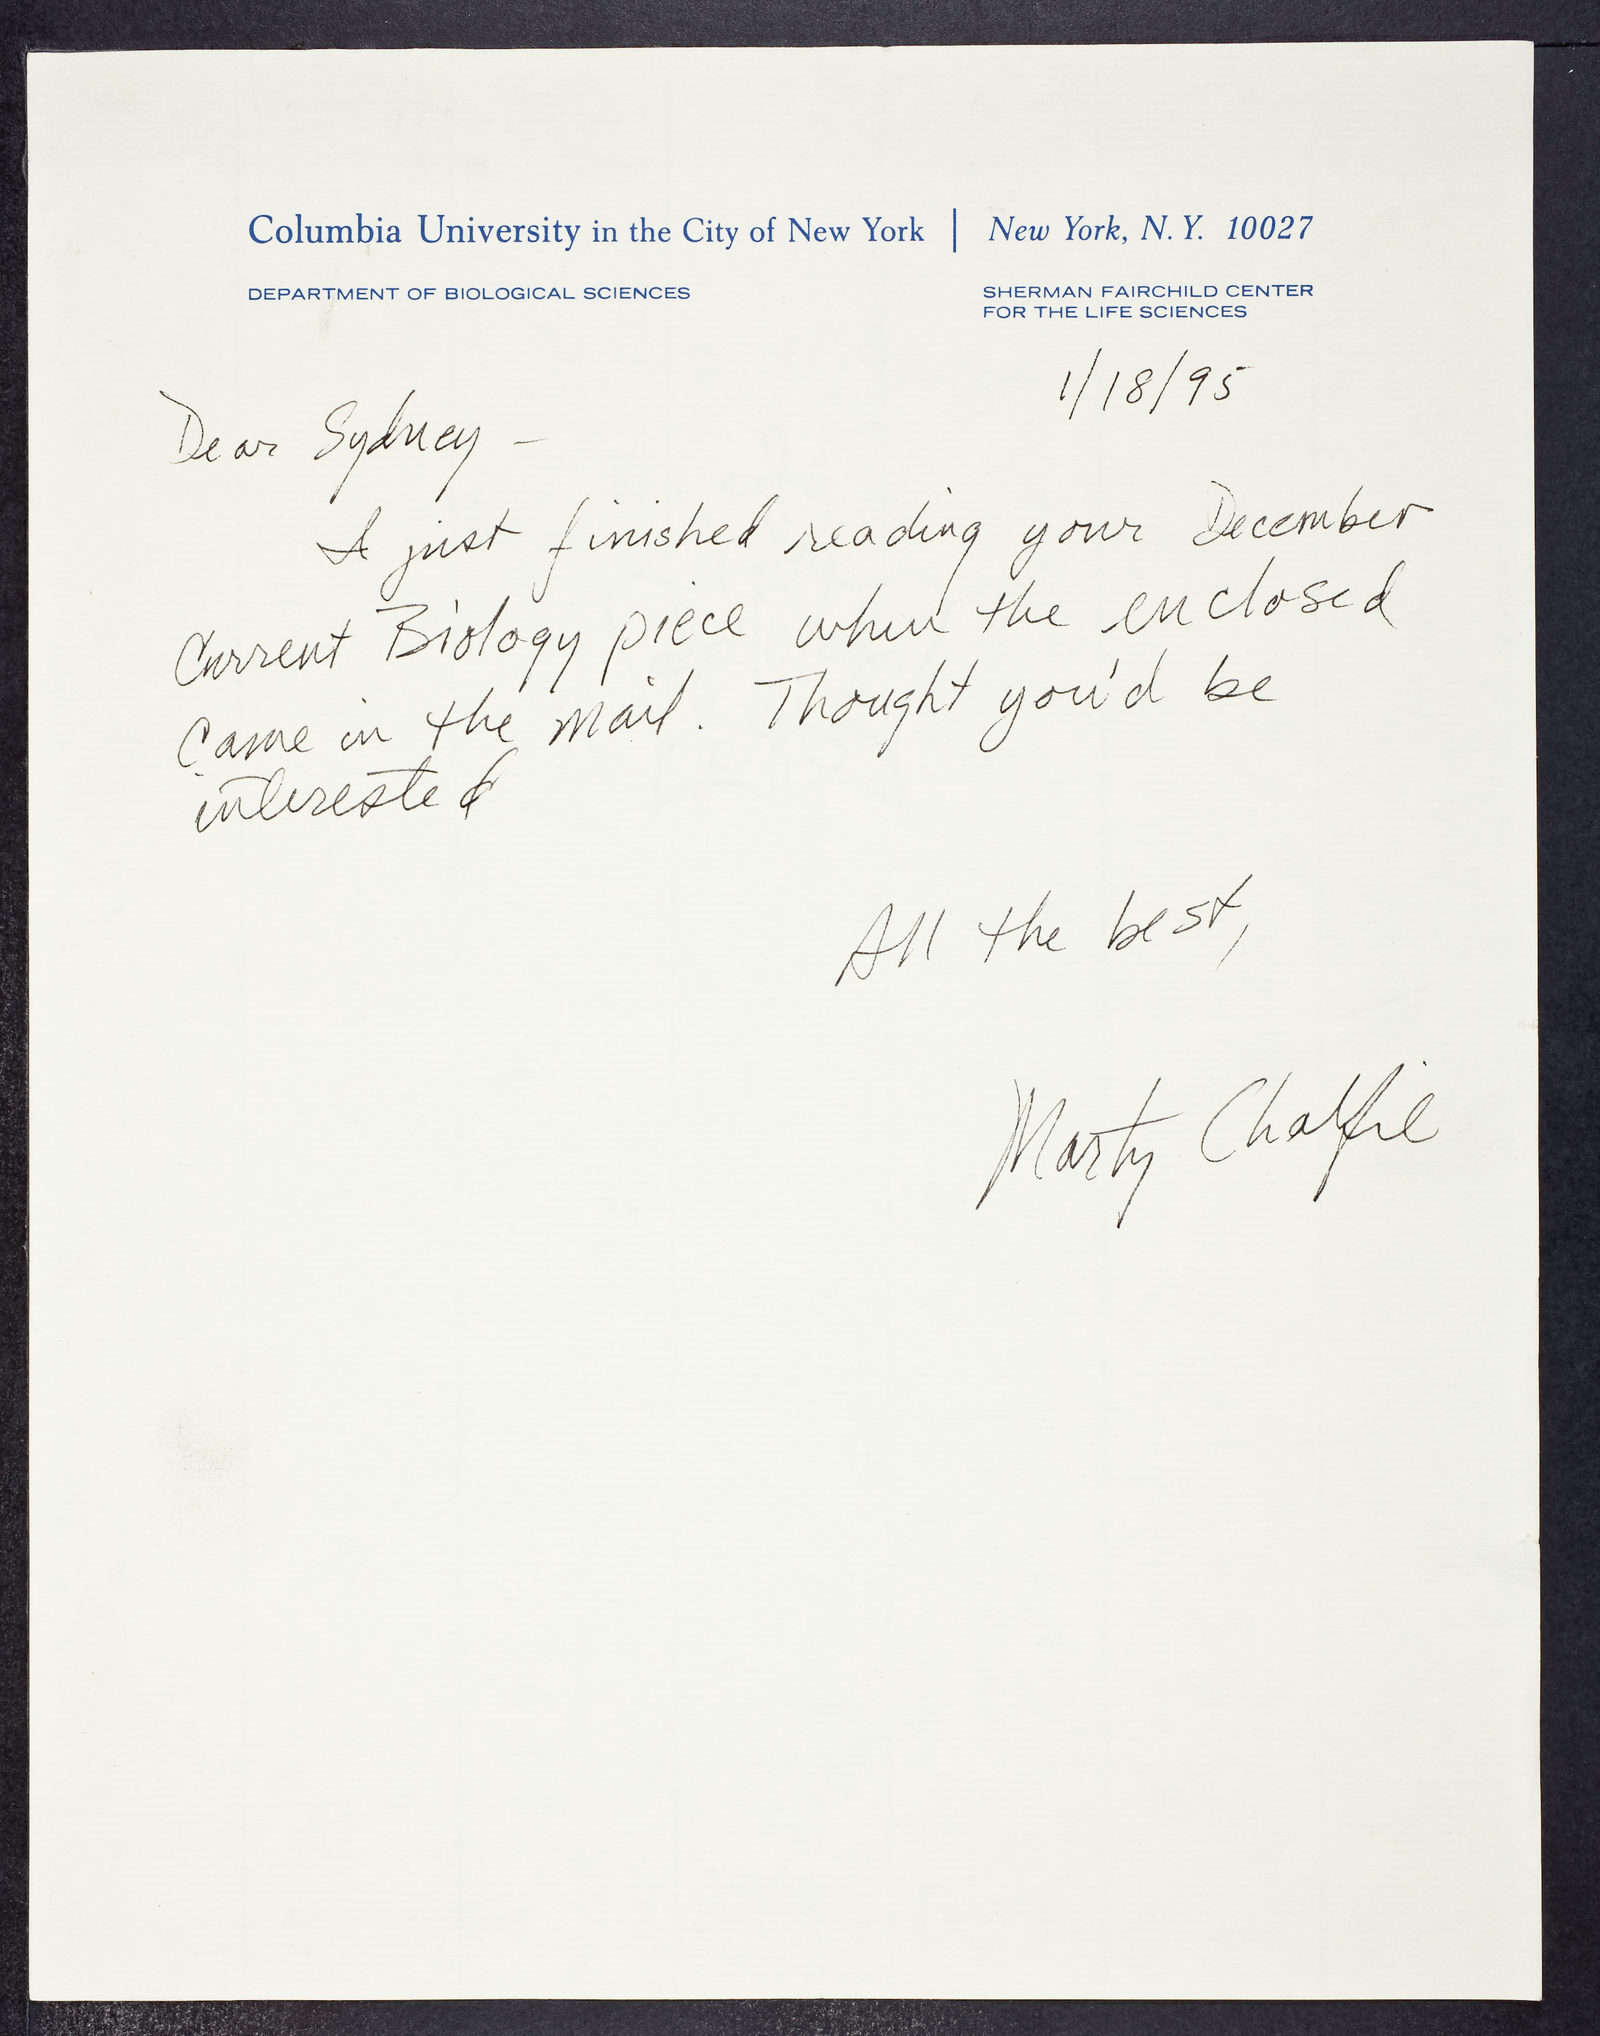 Columbia University in the City of New York | New York, N. Y. 10027
DEPARTMENT OF BIOLOGICAL SCIENCES
SHERMAN FAIRCHILD CENTER
FOR THE LIFE SCIENCES
1/18/95
Dear Sydney –
I just finished reading your December
Current Biology piece when the enclosed
came in the mail. Thought you'd be
interested
All the best,
Marty Chalfie